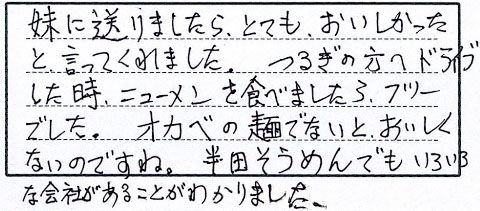 妹に送りましたら、とても、おいしかった
と、言ってくれました。 つるぎの方へドライブ
した時、ニューメンを食べましたら、フツー
でした。 オカベの麺でないと、おいしく
ないのですね。 半田そうめんでもいろいろ
な会社があることがわかりました。